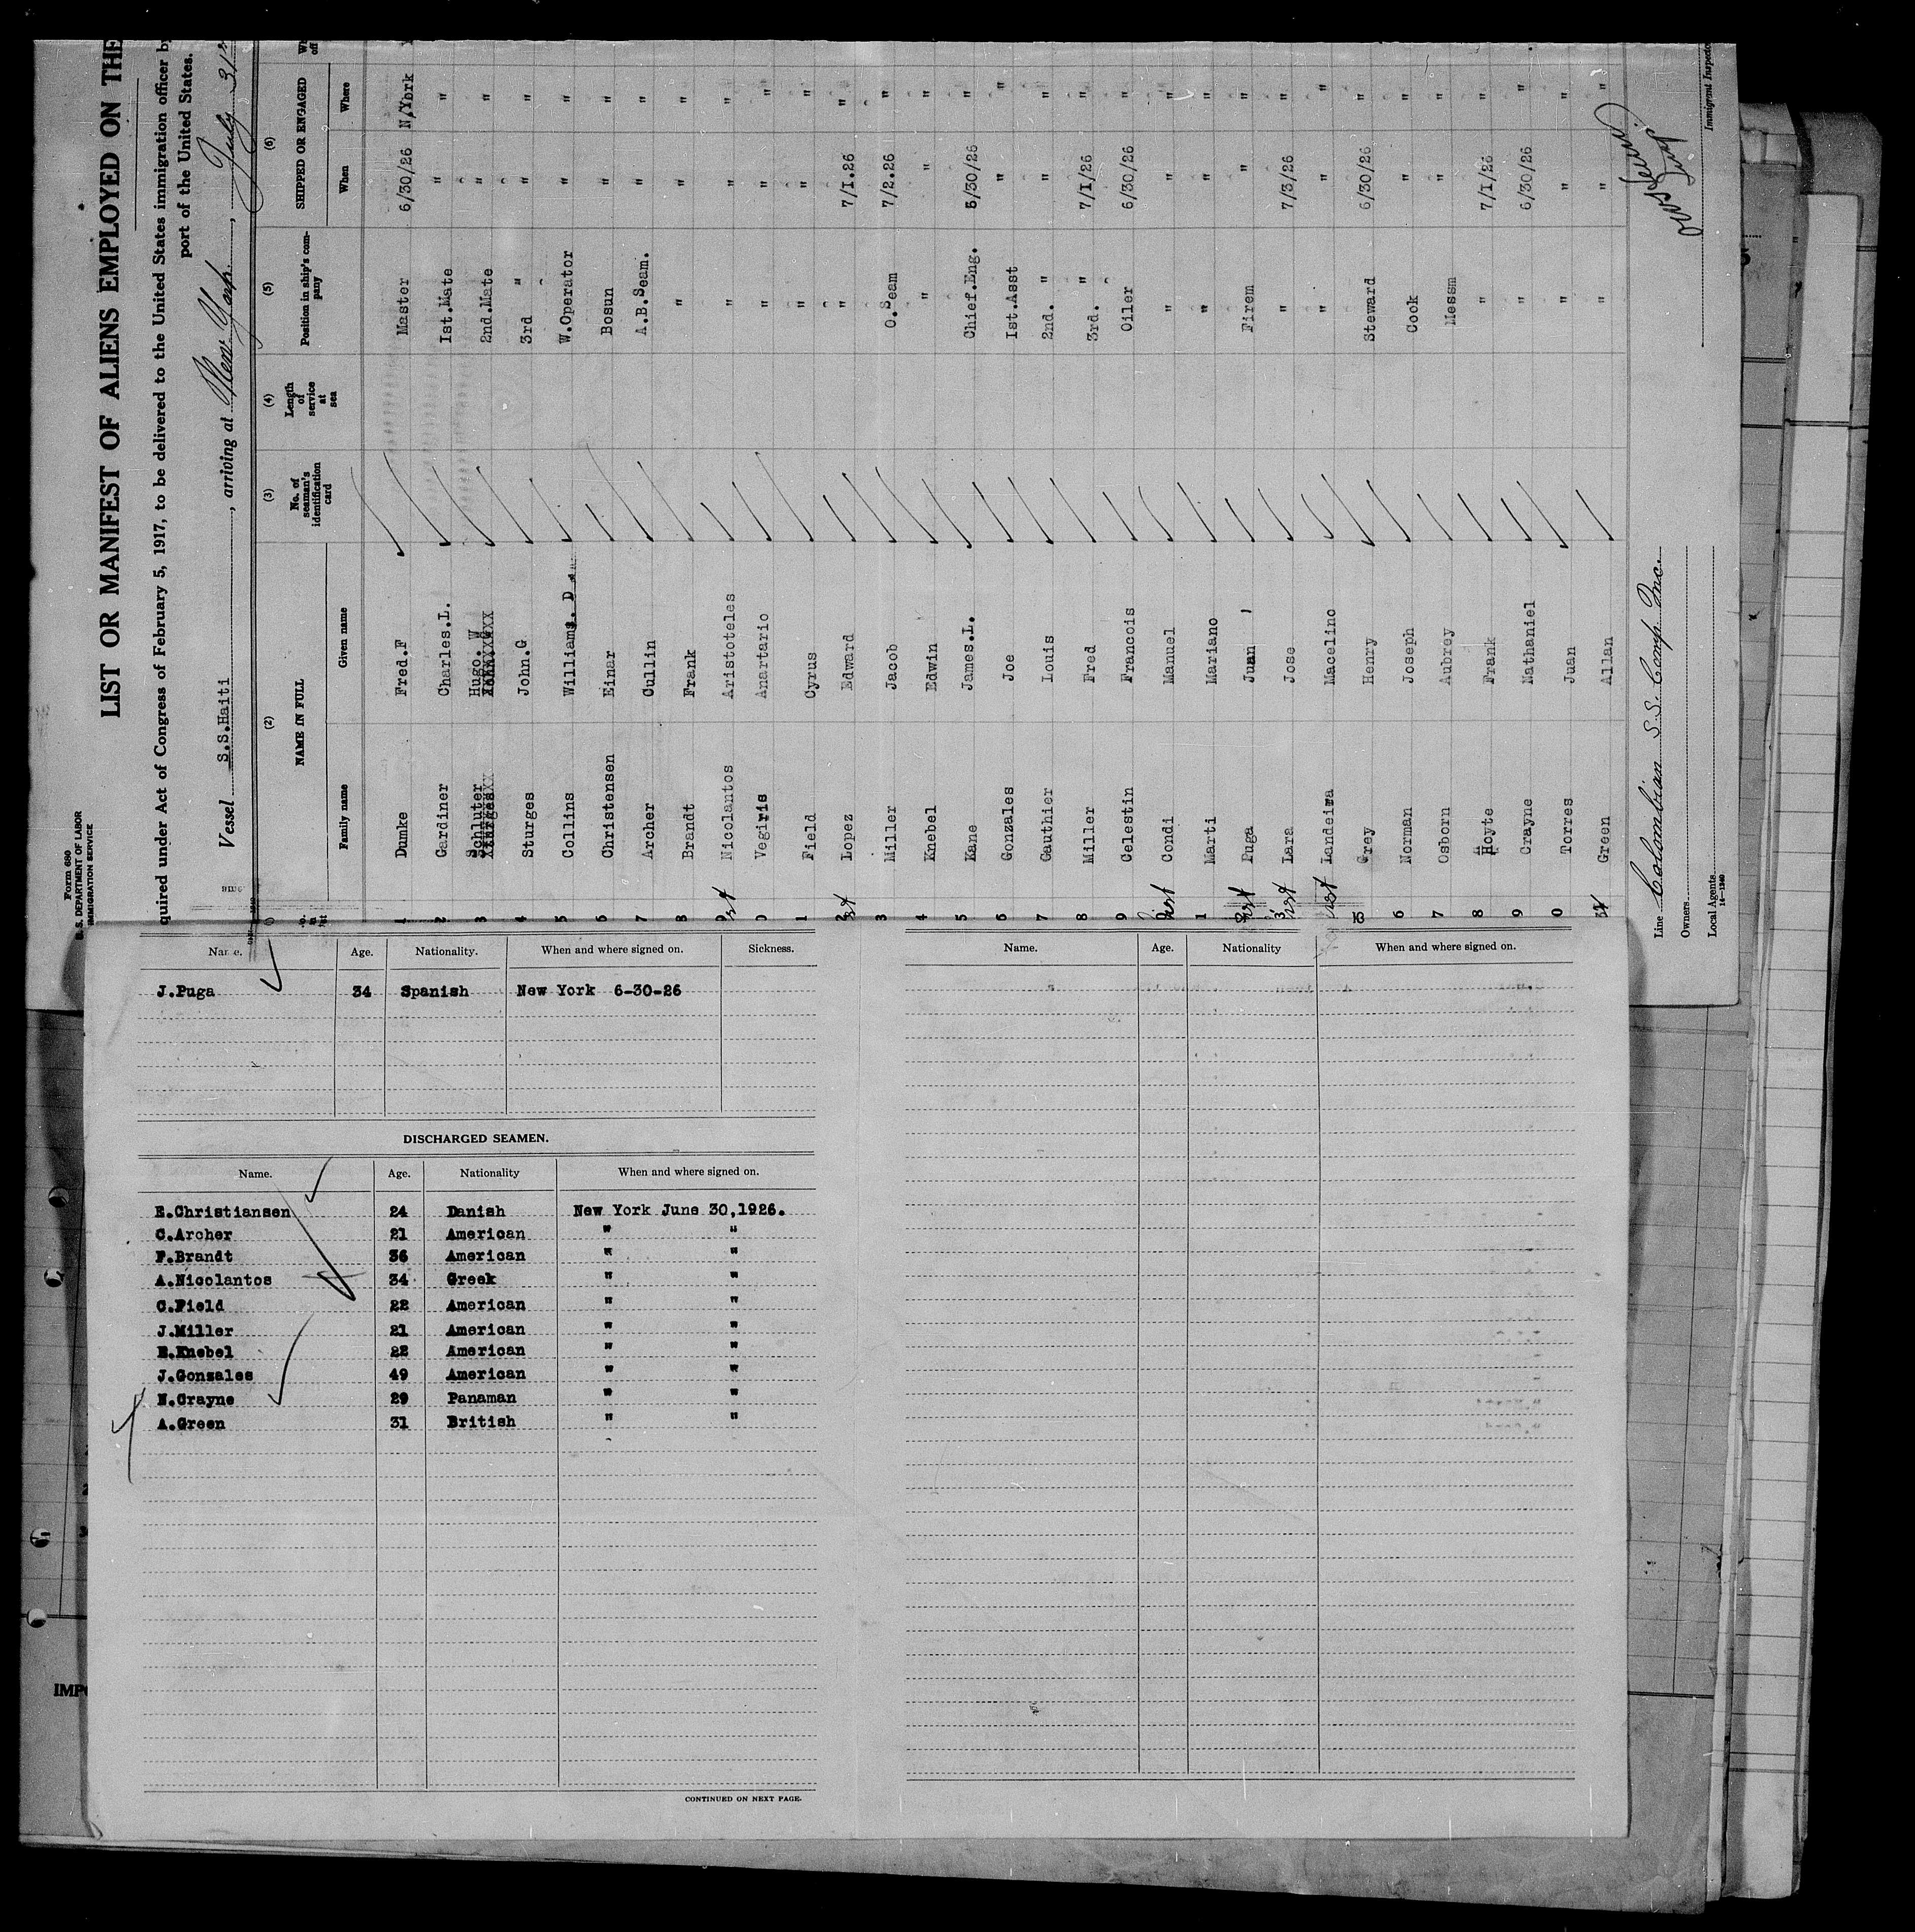 Form 680
U. S. DEPARTMENT OF LABOR
IMMIGRATION SERVICE
LIST OR MANIFEST OF ALIENS EMPLOYED ON THE
quired under Act of Congress of February 5, 1917, to be delivered to the United States immigration officer by
port of the United States.
Vessel S.S.Haiti, arriving at New York, July 31
(2) (3) (4) (5) (6)
NAME IN FULL No. of seaman's identification card Length of service at sea Position in ship's company SHIPPED OR ENGAGED
Family name Given name When Where
1 Dumke Fred.F Master 6/30/26 N/York
2 Gardiner Charles.L. Ist.Mate " "
3 Schluter Hugo. W 2nd.Mate " "
4 Sturges John.G 3rd " " "
5 Collins Williams. D W.Operator " "
6 Christensen Einar Bosun " "
7 Archer Cullin A.B.Seam. " "
8 Brandt Frank " " "
9 Nicolantos Aristoteles " " "
0 Vegiris Anartario " " "
1 Field Cyrus " " "
2 Lopez Edward " 7/1.26 "
3 Miller Jacob O.Seam 7/2.26 "
4 Knebel Edwin " " "
5 Kane James.L. Chief.Eng. 6/30/26 "
6 Gonzales Joe Ist.Asst " "
7 Gauthier Louis 2nd. " " "
8 Miller Fred 3rd. " 7/1/26 "
9 Celestin Francois Oiler 6/30/26 "
Condi Manuel " " "
1 Marti Mariano " " "
Puga Juan Firem " "
3 Lara Jose " 7/3/26 "
Landeira Macelino " " "
Grey Henry Steward 6/30/26 "
6 Norman Joseph Cook " "
7 Osborn Aubrey Messm " "
8 Hoyte Frank " 7/I/26 "
9 Crayne Nathaniel " 6/30/26 "
0 Torres Juan " " "
Green Allan " " "
Line Colombian S.S. Comp. Inc.
Owners
Local Agents
14—1240
Immigrant Inspector
Name. Age. Nationality. When and where signed on. Sickness.
J.Puga 34 Spanish New York 6-30-26
DISCHARGED SEAMEN.
Name. Age. Nationality When and where signed on.
E.Christiansen 24 Danish New York June 30,1926.
C.Archer 21 American " "
F.Brandt 36 American " "
A.Nicolantos 34 Greek " "
C.Field 22 American " "
J.Miller 21 American " "
E.Knebel 22 American " "
J.Gonzales 49 American " "
N.Crayne 29 Panaman " "
A.Green 31 British " "
CONTINUED ON NEXT PAGE.
Name. Age. Nationality When and where signed on.
IMPO